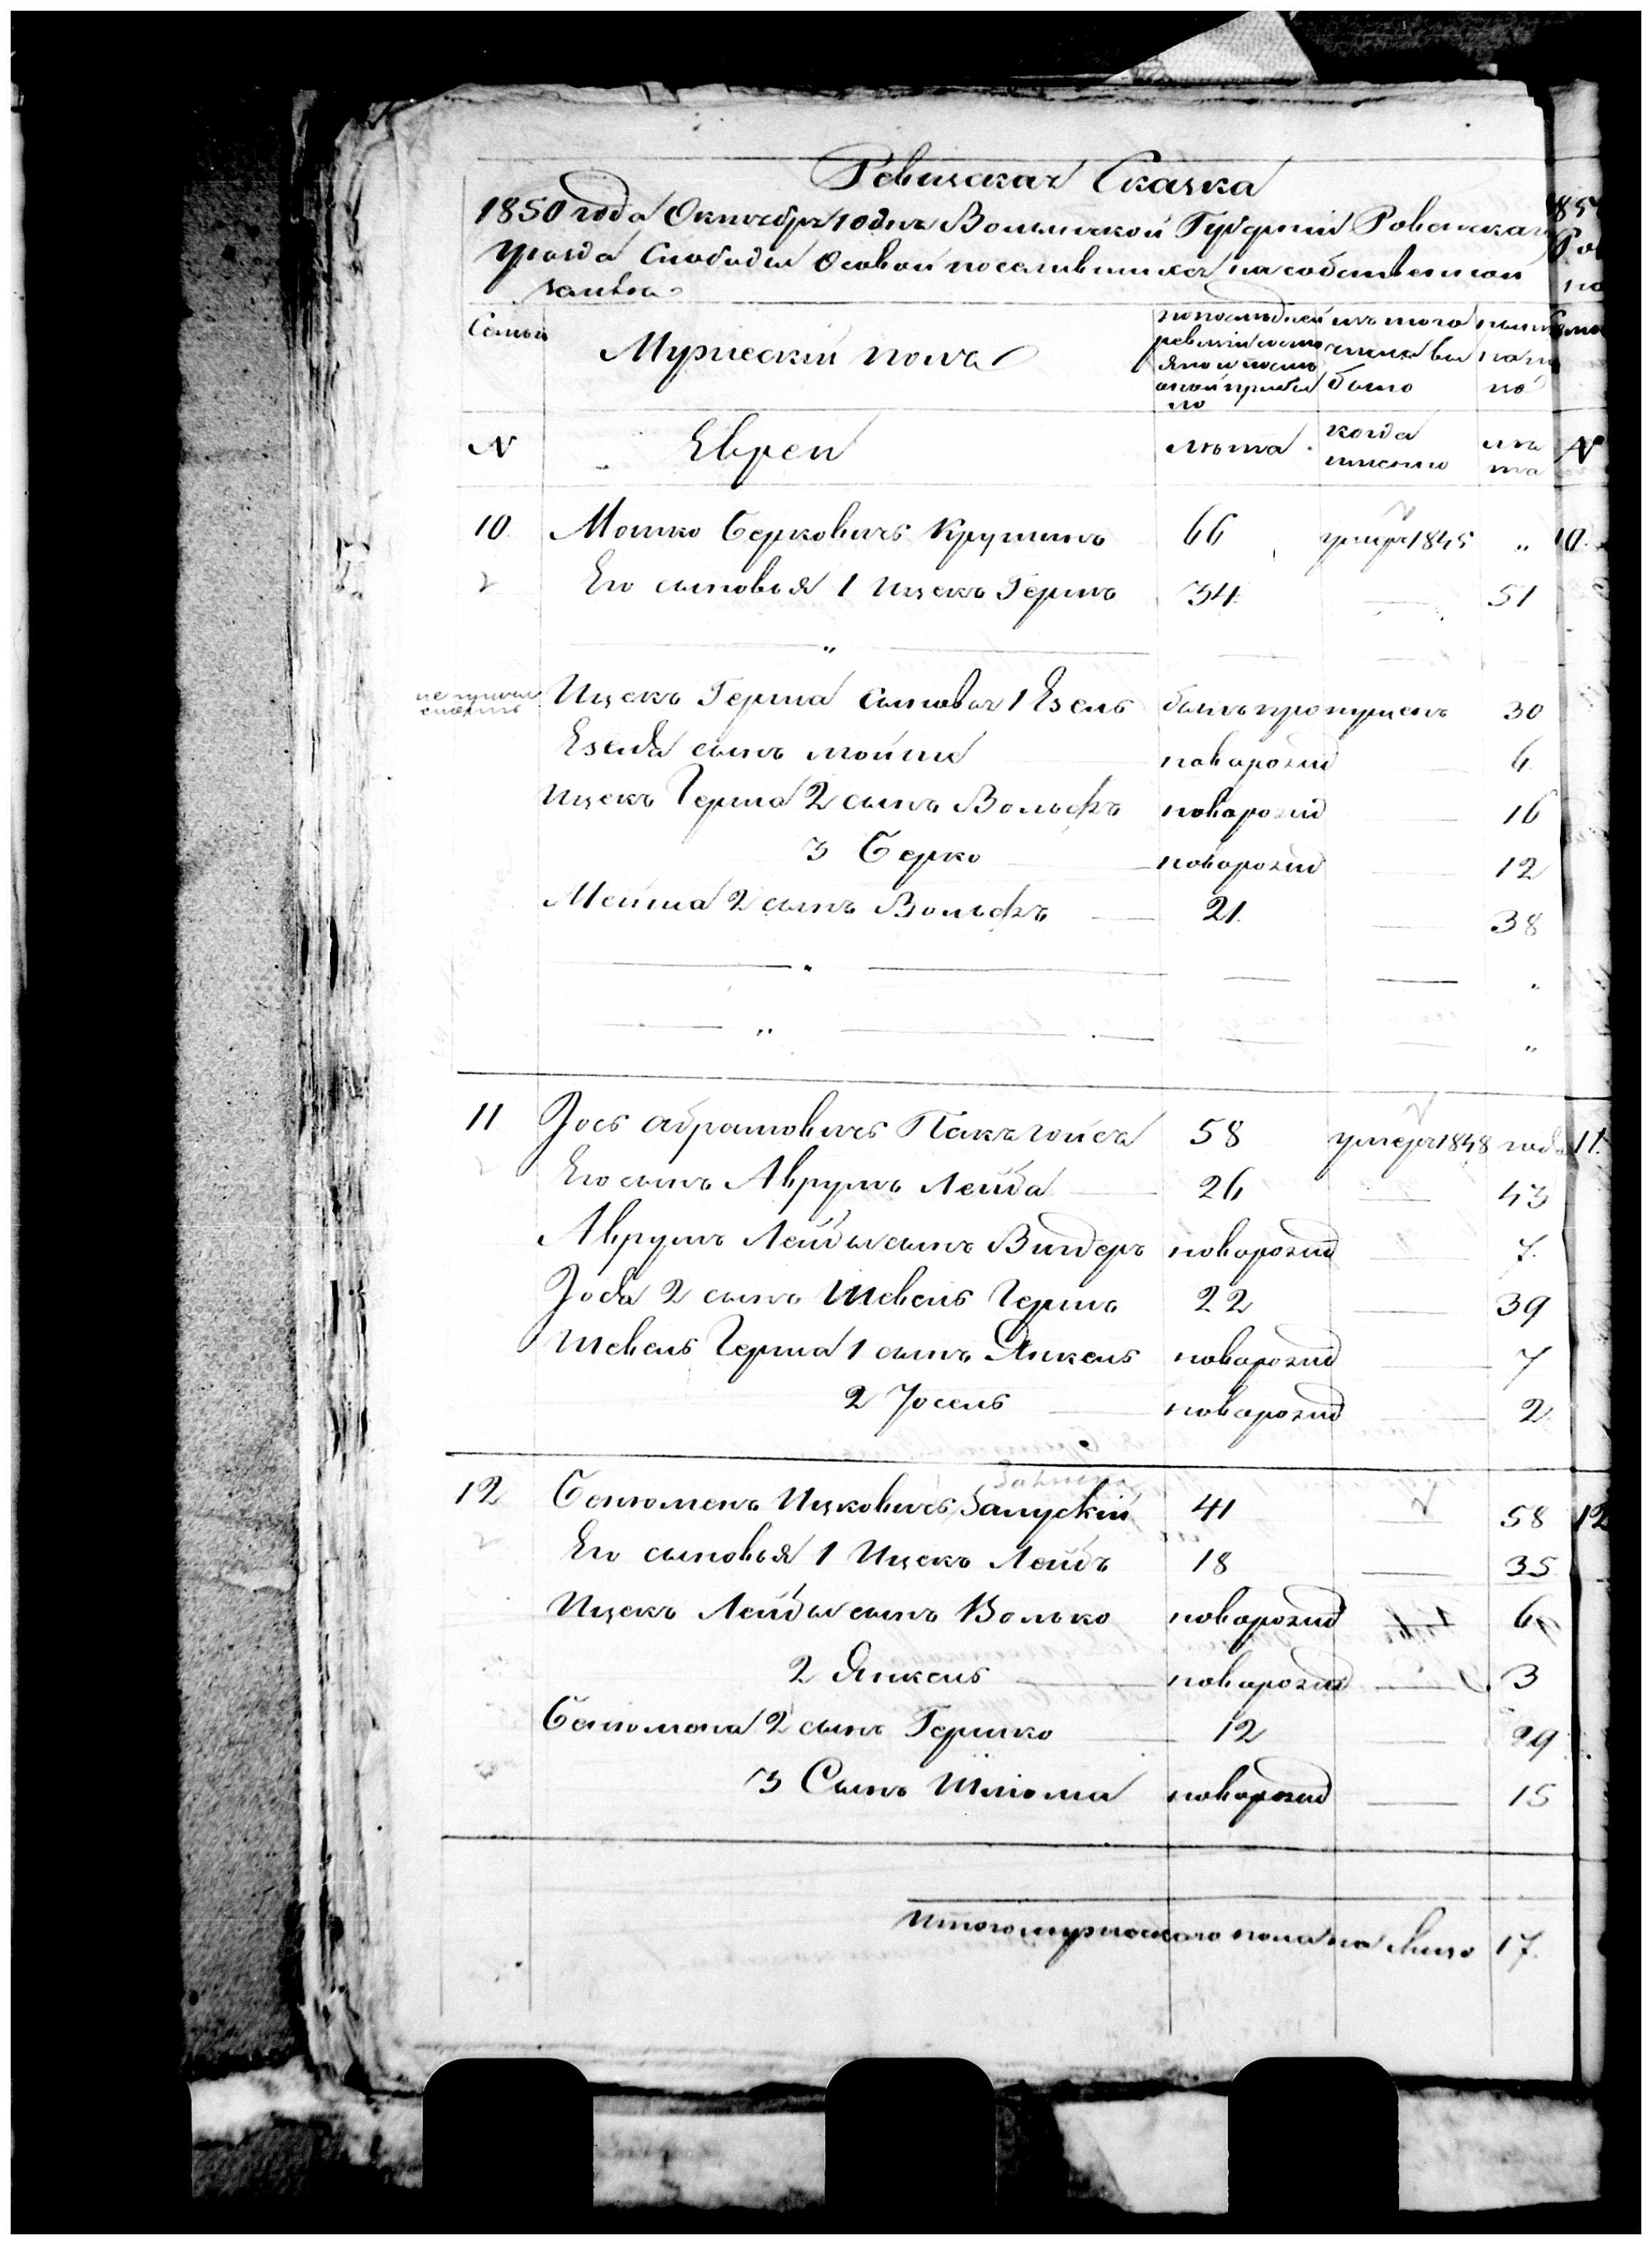 Ревизская Сказка
1850 года Октября 10 дня Волынской Губерніи Ровенскаго
Уезда Слободы Осовой поселившихся на собственной
земле
Семьи
Мужескій полъ
по последней ревизіи состояло и после оной прибыло
изъ того числа выбыло
ныне на лицо
N Евреи лѣта когда именно лѣта N
10 Мошко Берковичъ Крупникъ 66 умеръ 1845 „ 10
Его сыновья 1 Ицекъ Гершъ 34 — 51
„
Ицекъ Герша сыновья 1 Езель былъ пропущенъ 30
Езеля сынъ Мойше новорожд 6
Ицекъ Герша 2 сынъ Вольфъ новорожд 16
3 Берко новорожд 12
Мошка 2 сынъ Вольфъ 21 — 38
— „ — — — „
— „ — — — „
11 Іось Абрамовичъ 58 умеръ 1848 года 11
Его сынъ Аврумъ Лейба 26 — 43
Аврумъ Лейбы сынъ новорожд — 7
Іося 2 сынъ Шевель Гершъ 22 — 39
Шевель Герша 1 сынъ Янкель новорожд — 7
2 Іосель новорожд — 2
12 Ицковичъ Залускій 41 — 58 12
Его сыновья 1 Ицекъ Лейбъ 18 — 35
Ицекъ Лейбы сынъ Волько новорожд — 6
2 Янкель новорожд — 3
2 сынъ Гершко 12 — 29
3 Сынъ Шлюма новорожд — 15
Итого мужескаго пола на лицо 17